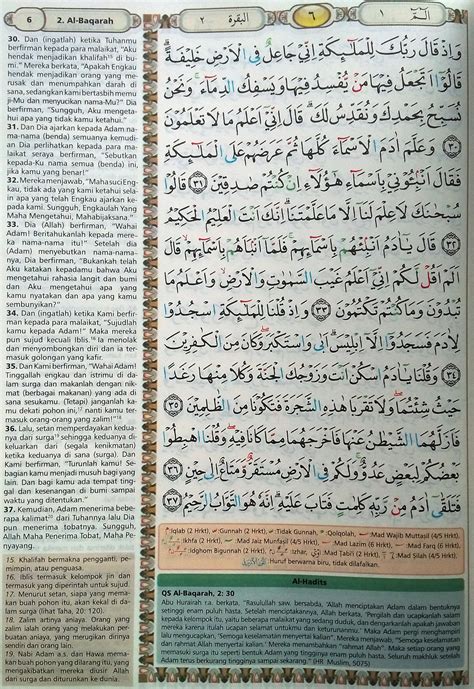 6
2. Al-Baqarah
البقرة ٢
٦
الۤمّۤ ١
30. Dan (ingatlah) ketika Tuhanmu
berfirman kepada para malaikat, "Aku
hendak menjadikan khalifah¹⁵ di bu-
mi." Mereka berkata, "Apakah Engkau
hendak menjadikan orang yang me-
rusak dan menumpahkan darah di
sana, sedangkan kami bertasbih memu
ji-Mu dan menyucikan nama-Mu?" Dia
berfirman, "Sungguh, Aku mengeta-
hui apa yang tidak kamu ketahui."
31. Dan Dia ajarkan kepada Adam
nama-nama (benda) semuanya kemudi-
an Dia perlihatkan kepada para ma-
laikat seraya berfirman, "Sebutkan
kepada-Ku nama semua (benda) ini,
jika kamu yang benar!"
32. Mereka menjawab, "Mahasuci Eng-
kau, tidak ada yang kami ketahui sela-
in apa yang telah Engkau ajarkan ke-
pada kami. Sungguh, Engkaulah Yang
Maha Mengetahui, Mahabijaksana."
33. Dia (Allah) berfirman, "Wahai
Adam! Beritahukanlah kepada mere-
ka nama-nama itu!" Setelah dia
(Adam) menyebutkan nama-nama-
nya, Dia berfirman, "Bukankah telah
Aku katakan kepadamu bahwa Aku
mengetahui rahasia langit dan bumi
dan Aku mengetahui apa yang kamu
nyatakan dan apa yang kamu
sembunyikan?"
34. Dan (ingatlah) ketika Kami berfir-
man kepada para malaikat, "Sujudlah
kamu kepada Adam!" Maka mereka
pun sujud kecuali Iblis.¹⁶ Ia menolak
dan menyombongkan diri dan ia ter-
masuk golongan yang kafir.
35. Dan Kami berfirman, "Wahai Adam!
Tinggallah engkau dan istrimu di da-
lam surga dan makanlah dengan nik-
mat (berbagai makanan) yang ada di
sana sesukamu. (Tetapi) janganlah ka-
mu dekati pohon ini,¹⁷ nanti kamu ter-
masuk orang-orang yang zalim!"¹⁸
36. Lalu, setan memperdayakan kedua-
nya dari surga¹⁹ sehingga keduanya di-
keluarkan dari (segala kenikmatan)
ketika keduanya di sana (surga). Dan
Kami berfirman, "Turunlah kamu! Se-
bagian kamu menjadi musuh bagi yang
lain. Dan bagi kamu ada tempat ting-
gal dan kesenangan di bumi sampai
waktu yang ditentukan."
37. Kemudian, Adam menerima bebe-
rapa kalimat²⁰ dari Tuhannya lalu Dia
pun menerima tobatnya. Sungguh,
Allah Maha Penerima Tobat, Maha Pe-
nyayang.
15. Khalifah bermakna pengganti, pe-
mimpin, atau penguasa.
16. Iblis termasuk kelompok jin dan
termasuk yang diperintah untuk sujud.
17. Menurut setan, siapa yang mema-
kan buah pohon itu, akan kekal di da-
lam surga (lihat Taha, 20: 120).
18. Zalim artinya aniaya. Orang yang
zalim ialah orang yang melakukan per-
buatan aniaya, yang merugikan dirinya
sendiri dan orang lain.
19. Nabi Adam a.s. dan Hawa mema-
kan buah pohon yang dilarang itu, yang
mengakibatkan mereka diusir Allah
dari surga dan diturunkan ke dunia.
وَاِذْ قَالَ رَبُّكَ لِلْمَلٰۤىِٕكَةِ اِنِّيْ جَاعِلٌ فِى الْاَرْضِ خَلِيْفَةً ۗ
قَالُوْٓا اَتَجْعَلُ فِيْهَا مَنْ يُّفْسِدُ فِيْهَا وَيَسْفِكُ الدِّمَاۤءَۚ وَنَحْنُ
نُسَبِّحُ بِحَمْدِكَ وَنُقَدِّسُ لَكَ ۗ قَالَ اِنِّيْٓ اَعْلَمُ مَا لَا تَعْلَمُوْنَ
٣٠ وَعَلَّمَ اٰدَمَ الْاَسْمَاۤءَ كُلَّهَا ثُمَّ عَرَضَهُمْ عَلَى الْمَلٰۤىِٕكَةِ
فَقَالَ اَنْۢبِـُٔوْنِيْ بِاَسْمَاۤءِ هٰٓؤُلَاۤءِ اِنْ كُنْتُمْ صٰدِقِيْنَ ٣١ قَالُوْا
سُبْحٰنَكَ لَا عِلْمَ لَنَآ اِلَّا مَا عَلَّمْتَنَا ۗاِنَّكَ اَنْتَ الْعَلِيْمُ الْحَكِيْمُ
٣٢ قَالَ يٰٓاٰدَمُ اَنْۢبِئْهُمْ بِاَسْمَاۤىِٕهِمْ ۚ فَلَمَّآ اَنْۢبَاَهُمْ بِاَسْمَاۤىِٕهِمْۙ قَالَ
اَلَمْ اَقُلْ لَّكُمْ اِنِّيْٓ اَعْلَمُ غَيْبَ السَّمٰوٰتِ وَالْاَرْضِۙ وَاَعْلَمُ مَا
تُبْدُوْنَ وَمَا كُنْتُمْ تَكْتُمُوْنَ ٣٣ وَاِذْ قُلْنَا لِلْمَلٰۤىِٕكَةِ اسْجُدُوْا
لِاٰدَمَ فَسَجَدُوْٓا اِلَّآ اِبْلِيْسَۗ اَبٰى وَاسْتَكْبَرَۖ وَكَانَ مِنَ الْكٰفِرِيْنَ
٣٤ وَقُلْنَا يٰٓاٰدَمُ اسْكُنْ اَنْتَ وَزَوْجُكَ الْجَنَّةَ وَكُلَا مِنْهَا رَغَدًا
حَيْثُ شِئْتُمَاۖ وَلَا تَقْرَبَا هٰذِهِ الشَّجَرَةَ فَتَكُوْنَا مِنَ الظّٰلِمِيْنَ ٣٥
فَاَزَلَّهُمَا الشَّيْطٰنُ عَنْهَا فَاَخْرَجَهُمَا مِمَّا كَانَا فِيْهِۖ وَقُلْنَا اهْبِطُوْا
بَعْضُكُمْ لِبَعْضٍ عَدُوٌّ ۚ وَلَكُمْ فِى الْاَرْضِ مُسْتَقَرٌّ وَّمَتَاعٌ اِلٰى حِيْنٍ ٣٦
فَتَلَقّٰٓى اٰدَمُ مِنْ رَّبِّهٖ كَلِمٰتٍ فَتَابَ عَلَيْهِ ۗ اِنَّهٗ هُوَ التَّوَّابُ الرَّحِيْمُ
:Iqlab (2 Hrkt), :Gunnah (2 Hrkt), :Tidak Gunnah, :Qolqolah, :Mad Wajib Muttasil (4/5 Hrkt),
:Ikhfa (2 Hrkt), :Mad Jaiz Munfasil (4/5 Hrkt), :Mad Lazim (6 Hrkt), :Mad Farq (6 Hrkt),
:Idghom Bigunnah (2 Hrkt), :Izhar, :Mad Tabi'i (2 Hrkt), :Mad Silah (4/5 Hrkt),
Huruf berwarna biru, tidak dilafalkan.
Al-Hadits
QS Al-Baqarah, 2: 30
Abu Hurairah r.a. berkata, "Rasulullah saw. bersabda, 'Allah menciptakan Adam dalam bentuknya
setinggi enam puluh hasta. Setelah menciptakannya, Allah berkata, 'Pergilah dan ucapkanlah salam
kepada kelompok itu, yaitu beberapa malaikat yang sedang duduk, dan dengarkanlah apakah jawaban
mereka karena itulah ucapan selamat untukmu dan keturunanmu.' Maka Adam pergi menghampiri
lalu mengucapkan, 'Semoga keselamatan menyertai kalian'. Mereka menjawab, 'Semoga keselamatan
dan rahmat Allah menyertai kalian.' Mereka menambahkan 'rahmat Allah'. Maka setiap orang yang
memasuki surga itu seperti bentuk Adam tingginya enam puluh hasta. Seluruh makhluk setelah
Adam terus berkurang tingginya sampai sekarang." (HR Muslim, 5075)